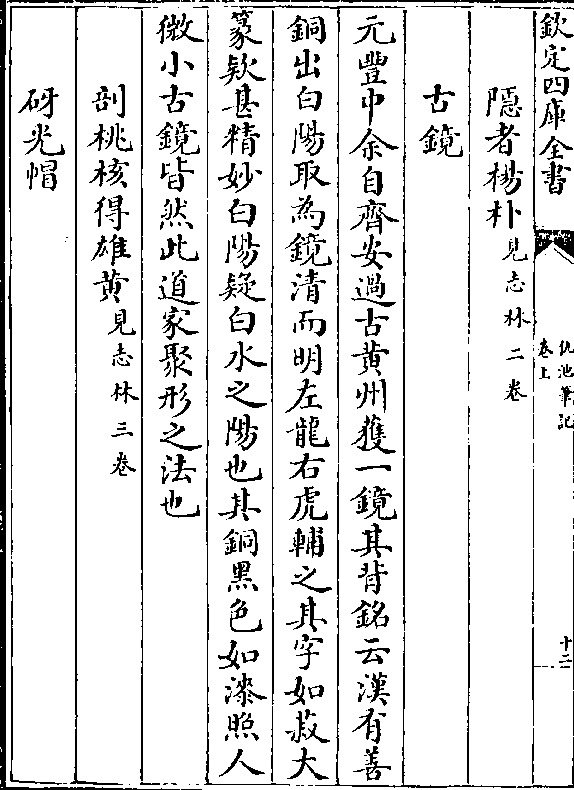 欽定四庫全書
仇池筆記
卷上
十二
隱者楊朴見志林二卷
古鏡
元豐中余自齊安過古黄州獲一鏡其背銘云漢有善
銅出白陽取為鏡清而明左龍右虎輔之其字如菽大
篆欵甚精妙白陽疑白水之陽也其銅黑色如漆照人
微小古鏡皆然此道家聚形之法也
剖桃核得雄黄見志林三卷
砑光帽